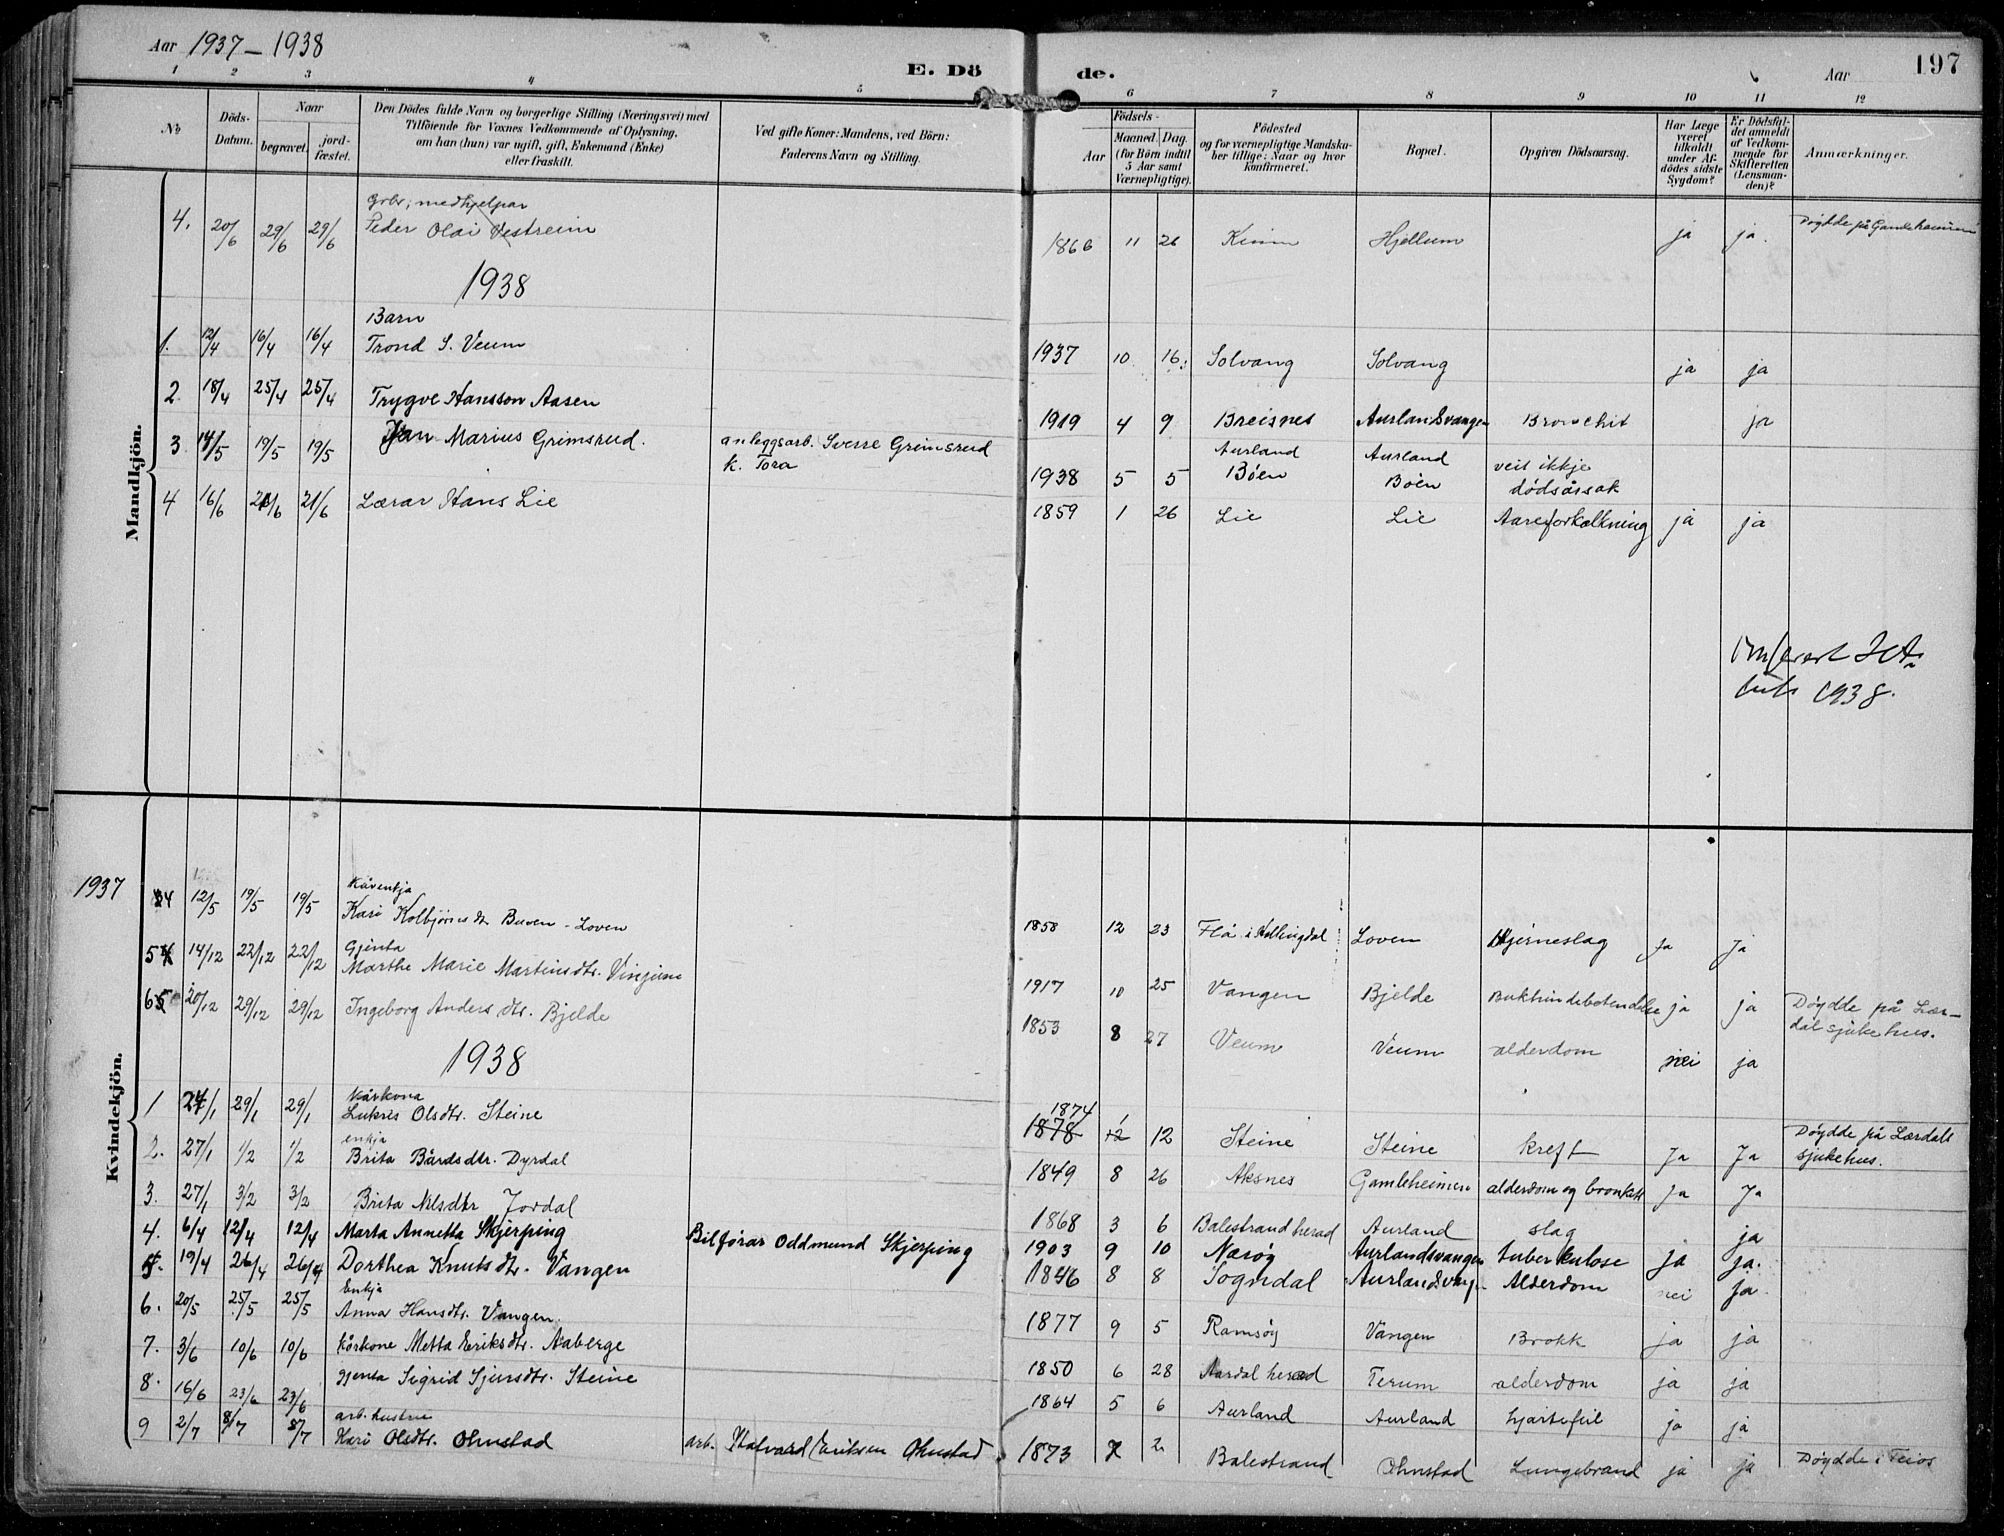 Aar 1937 - 1938
E. Dö de.
Aar 197
1 2 3 4 5 6 7 8 9 10 11 12
No
Döds-Datum.
Naar
begravet.
jord-fæstet.
Den Dödes fulde Navn og borgerlige Stilling (Næringsvei) med
Tilföiende for Voxnes Vedkommende af Oplysning,
om han (hun) var ugift, gift, Enkemand (Enke)
eller fraskilt.
Ved gifte Koner: Mandens, ved Börn:
Faderens Navn og Stilling.
Födsels-
Aar
Maaned. Dag.
(for Börn indtil
5 Aar samt
Værnepligtige).
Födested
og for værnepligtige Mandska-
ber tillige: Naar og hvor
konfirmeret.
Bopæl.
Opgiven Dödsaarsag.
Har Læge
været
tilkaldt
under Af-
dödes sidste
Sygdom?
Er Dödsfal-
det anmeldt
af Vedkom-
mende for
Skifteretten
(Lensman-
den)?
Anmærkninger.
Mandkjön.
Gbr., medhjelpar
4. 20/6 29/6 29/6 Peder Olai Vestreim 1866 11 26 Kinn Hjellum ja ja. Döydde på Gamleheimen
1938
Barn
1. 12/4 16/4 16/4 Trond S. Veum 1937 10 16. Solvang Solvang ja ja
2. 18/4 25/4 25/4 Trygve Hansson Aasen 1919 4 9 Breisnes Aurlandsvangen Bronchit ja
3 14/5 19/5 19/5 Jan Marius Grimsrud. anleggsarb. Sverre Grimsrud k. Tora 1938 5 5 Aurland Böen Aurland Böen veit ikkje dödsårsak
4 16/6 21/6 21/6 Lærar Hans Lie 1859 1 26 Lie Lie Aareforkalkning ja ja
1938.
Kvindekjön.
1937
Kårenkja
4 12/5 19/5 19/5 Kari Kolbjörnsdtr Buven - Loven 1858 12 23 Flå i Hallingdal Loven Hjerneslag ja ja
Gjenta
5 14/12 22/12 22/12 Marthe Marie Martinsdtr. Vinjum 1917 10 25 Vangen Bjelde Bukhindebetendelse ja ja Döydde på Lær-
dal sjukehus.
6 20/12 29/12 29/12 Ingeborg Andersdtr. Bjelde 1853 8 27 Veum Veum alderdom nei ja
1938
Kårkona
1 24/1 29/1 29/1 Lukris Olsdtr. Steine 1874 1878 1 12 12 Steine Steine kreft Ja Ja Döydde på Lærdals
sjukehus.
enkja
2. 27/1 1/2 1/2 Brita Bårdsdtr. Dyrdal 1849 8 26 Aksnes Gamleheimen alderdom og bronkitt ja Ja
3. 27/1 3/2 3/2 Brita Nilsdtr Jordal 1868 3 6 Balestrand herad Aurland slag ja
4. 6/4 12/4 12/4 Marta Annetta Skjerping Bilförar Oddmund Skjerping 1903 9 10 Næröy Aurlandsvangen tuberkulose ja ja.
5. 19/4 26/4 26/4 Dorthea Knutsdtr. Vangen 1846 8 8 Sogndal Aurlandsvang. Alderdom nei ja.
Enkja
6. 20/5 25/5 25/5 Anna Hansdtr. Vangen. 1877 9 5 Ramsöy Vangen Brokk ja ja
7. 3/6 10/6 10/6 Kårkone Metta Eriksdtr. Aaberge 1850 6 28 Aardal herad Terum alderdom ja ja
8. 16/6 23/6 23/6 gjenta Sigrid Sjursdtr. Steine 1864 5 6 Aurland Aurland hjartefeil ja ja
arb. hustru
9 2/7 8/7 8/7 Kari Olsdtr. Ohnstad arb. Halvard Eriksen Ohnstad 1873 7 2 Balestrand Ohnstad Lungebrand ja ja Döydde i Feios